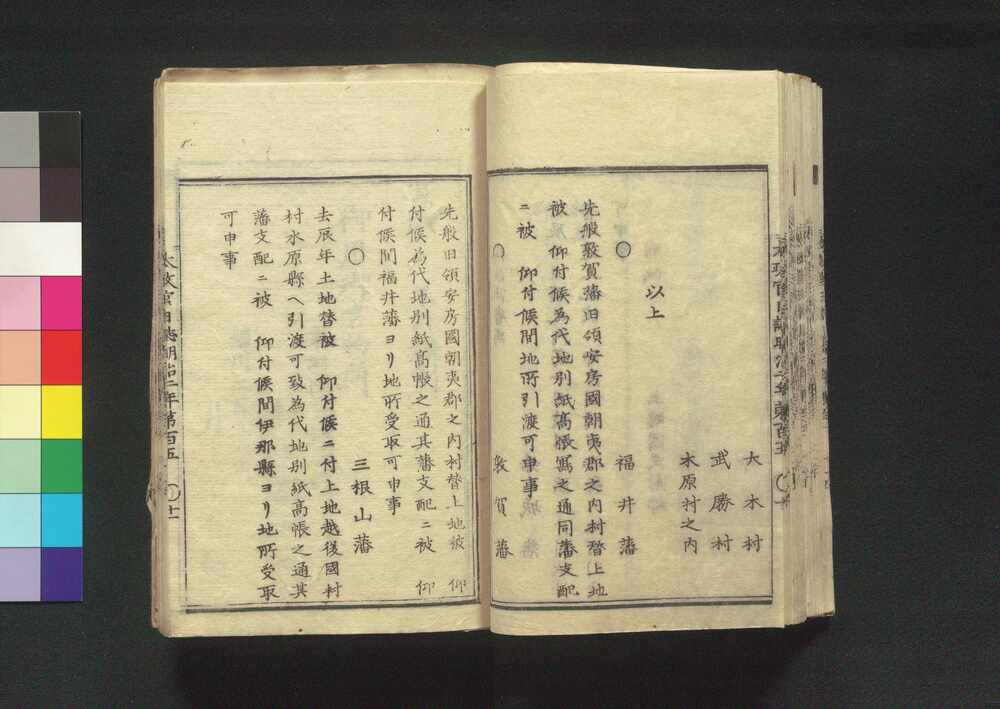 大木村
武勝村
木原村之内
以上
○
福井藩
先般敦賀藩旧領安房國朝夷郡之内村替上地
被 仰付候為代地別紙高帳寫之通同藩支配
ニ被 仰付候間地所引渡可申事
○
敦賀藩
先般旧領安房國朝夷郡之内村替上地被 仰
付候為代地別紙高帳之通其藩支配ニ被 仰
付候間福井藩ヨリ地所受取可申事
三根山藩
去辰年土地替被 仰付候ニ付上地越後國村
村水原縣ヘ引渡可致為代地別紙高帳之通其
藩支配ニ被 仰付候間伊那縣ヨリ地所受取
可申事
太政官日誌明治二年第百五
○十一